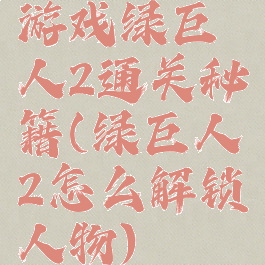 游戏绿巨
人2通关秘
籍(绿巨人
2怎么解锁
人物)